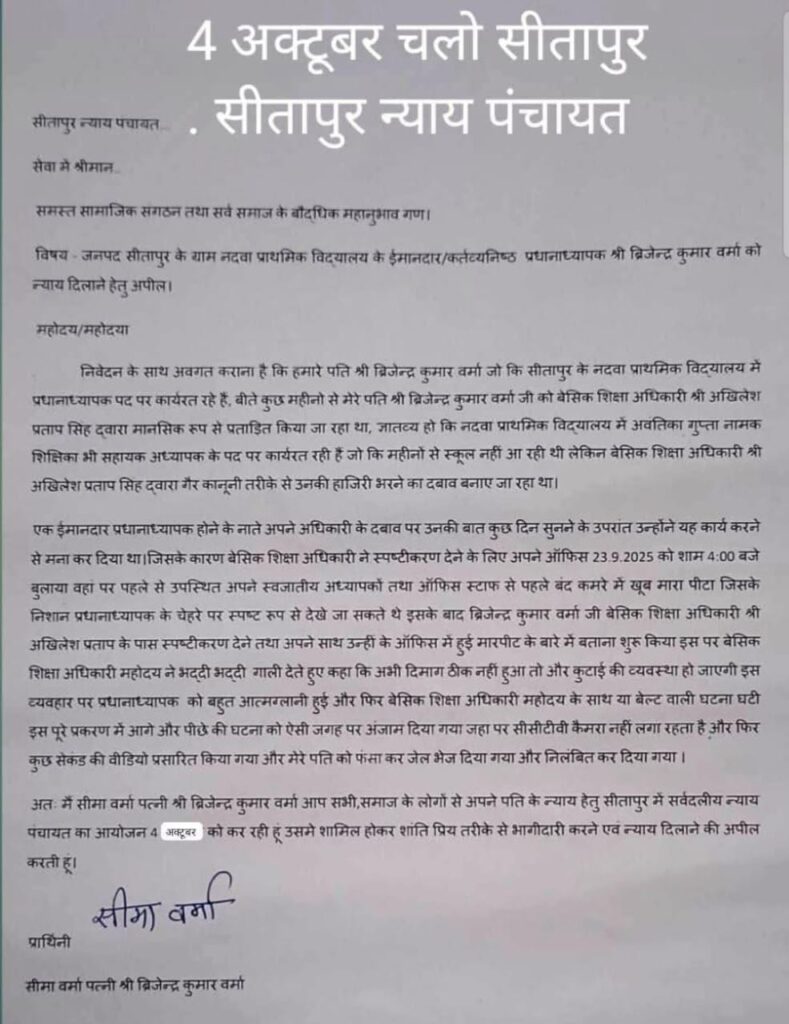 4 अक्टूबर चलो सीतापुर
. सीतापुर न्याय पंचायत
सीतापुर न्याय पंचायत...
सेवा मे श्रीमान..
समस्त सामाजिक संगठन तथा सर्व समाज के बौद्धिक महानुभाव गण।
विषय - जनपद सीतापुर के ग्राम नदवा प्राथमिक विद्यालय के ईमानदार/कर्तव्यनिष्ठ प्रधानाध्यापक श्री ब्रिजेन्द्र कुमार वर्मा को
न्याय दिलाने हेतु अपील।
महोदय/महोदया
निवेदन के साथ अवगत कराना है कि हमारे पति श्री ब्रिजेन्द्र कुमार वर्मा जो कि सीतापुर के नदवा प्राथमिक विद्यालय में
प्रधानाध्यापक पद पर कार्यरत रहे हैं, बीते कुछ महीनो से मेरे पति श्री ब्रिजेन्द्र कुमार वर्मा जी को बेसिक शिक्षा अधिकारी श्री अखिलेश
प्रताप सिंह द्वारा मानसिक रूप से प्रताड़ित किया जा रहा था, ज्ञातव्य हो कि नदवा प्राथमिक विद्यालय में अवंतिका गुप्ता नामक
शिक्षिका भी सहायक अध्यापक के पद पर कार्यरत रही हैं जो कि महीनों से स्कूल नहीं आ रही थी लेकिन बेसिक शिक्षा अधिकारी श्री
अखिलेश प्रताप सिंह द्वारा गैर कानूनी तरीके से उनकी हाजिरी भरने का दबाव बनाए जा रहा था।
एक ईमानदार प्रधानाध्यापक होने के नाते अपने अधिकारी के दबाव पर उनकी बात कुछ दिन सुनने के उपरांत उन्होंने यह कार्य करने
से मना कर दिया था।जिसके कारण बेसिक शिक्षा अधिकारी ने स्पष्टीकरण देने के लिए अपने ऑफिस 23.9.2025 को शाम 4:00 बजे
बुलाया वहां पर पहले से उपस्थित अपने स्वजातीय अध्यापकों तथा ऑफिस स्टाफ से पहले बंद कमरे में खूब मारा पीटा जिसके
निशान प्रधानाध्यापक के चेहरे पर स्पष्ट रूप से देखे जा सकते थे इसके बाद ब्रिजेन्द्र कुमार वर्मा जी बेसिक शिक्षा अधिकारी श्री
अखिलेश प्रताप के पास स्पष्टीकरण देने तथा अपने साथ उन्हीं के ऑफिस में हुई मारपीट के बारे में बताना शुरू किया इस पर बेसिक
शिक्षा अधिकारी महोदय ने भद्दी भद्दी गाली देते हुए कहा कि अभी दिमाग ठीक नहीं हुआ तो और कुटाई की व्यवस्था हो जाएगी इस
व्यवहार पर प्रधानाध्यापक को बहुत आत्मग्लानी हुई और फिर बेसिक शिक्षा अधिकारी महोदय के साथ या बेल्ट वाली घटना घटी
इस पूरे प्रकरण में आगे और पीछे की घटना को ऐसी जगह पर अंजाम दिया गया जहा पर सीसीटीवी कैमरा नहीं लगा रहता है और फिर
कुछ सेकंड की वीडियो प्रसारित किया गया और मेरे पति को फंसा कर जेल भेज दिया गया और निलंबित कर दिया गया ।
अतः मैं सीमा वर्मा पत्नी श्री ब्रिजेन्द्र कुमार वर्मा आप सभी,समाज के लोगों से अपने पति के न्याय हेतु सीतापुर में सर्वदलीय न्याय
पंचायत का आयोजन 4 अक्टूबर को कर रही हूं उसमे शामिल होकर शांति प्रिय तरीके से भागीदारी करने एवं न्याय दिलाने की अपील
करती हूं।
सीमा वर्मा
प्रार्थिनी
सीमा वर्मा पत्नी श्री ब्रिजेन्द्र कुमार वर्मा